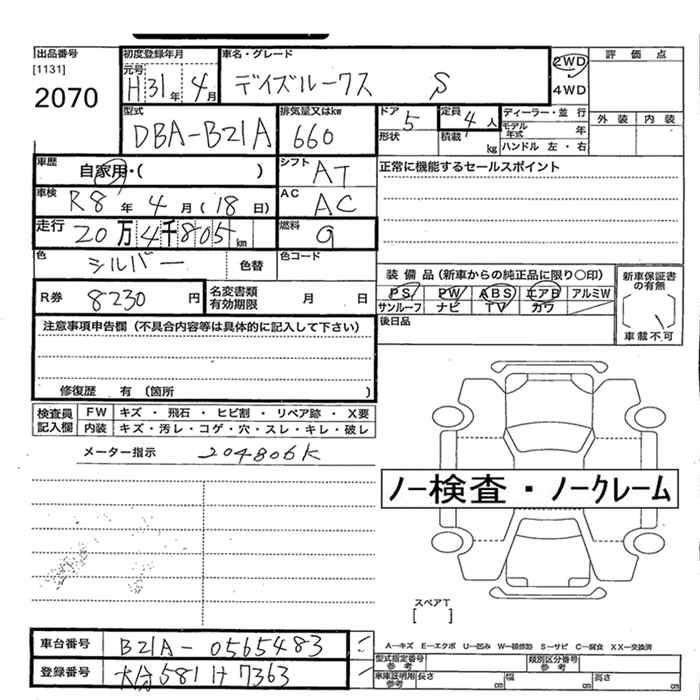 出品番号 初度登録年月 車名・グレード 2WD 評価点
[1131] 元号 H31年 4月 デイズルークス S 4WD
2070
型式 排気量又はkw ドア 5 定員 4人 ディーラー・並行 外装 内装
DBA-B21A 660 形状 積載 kg モデル年式 年
ハンドル 左・右
車歴 自家用・( ) シフト AT 正常に機能するセールスポイント
車検 R8年 4月(18日) AC AC
走行 20万4千805km 燃料 g
色 シルバー 色替 色コード
装備品(新車からの純正品に限り○印) 新車保証書の有無
R券 8230円 名変書類有効期限 月 日 PS PW ABS エアB アルミW
サンルーフ ナビ TV カワ 車載不可
注意事項申告欄(不具合内容等は具体的に記入して下さい) 後日品
修復歴 有 (箇所 )
検査員記入欄 FW キズ・飛石・ヒビ割・リペア跡・X要
内装 キズ・汚レ・コゲ・穴・スレ・キレ・破レ
メーター指示 204806K
ノー検査・ノークレーム
スペアT
[ ]
車台番号 B21A-0565483 A-キズ E-エクボ U-凹み W-補修跡 S-サビ C-腐食 XX-交換済
型式指定番号参考 類別区分番号参考
登録番号 大分581け7363 車庫証明用参考 長さ cm 幅 cm 高さ cm